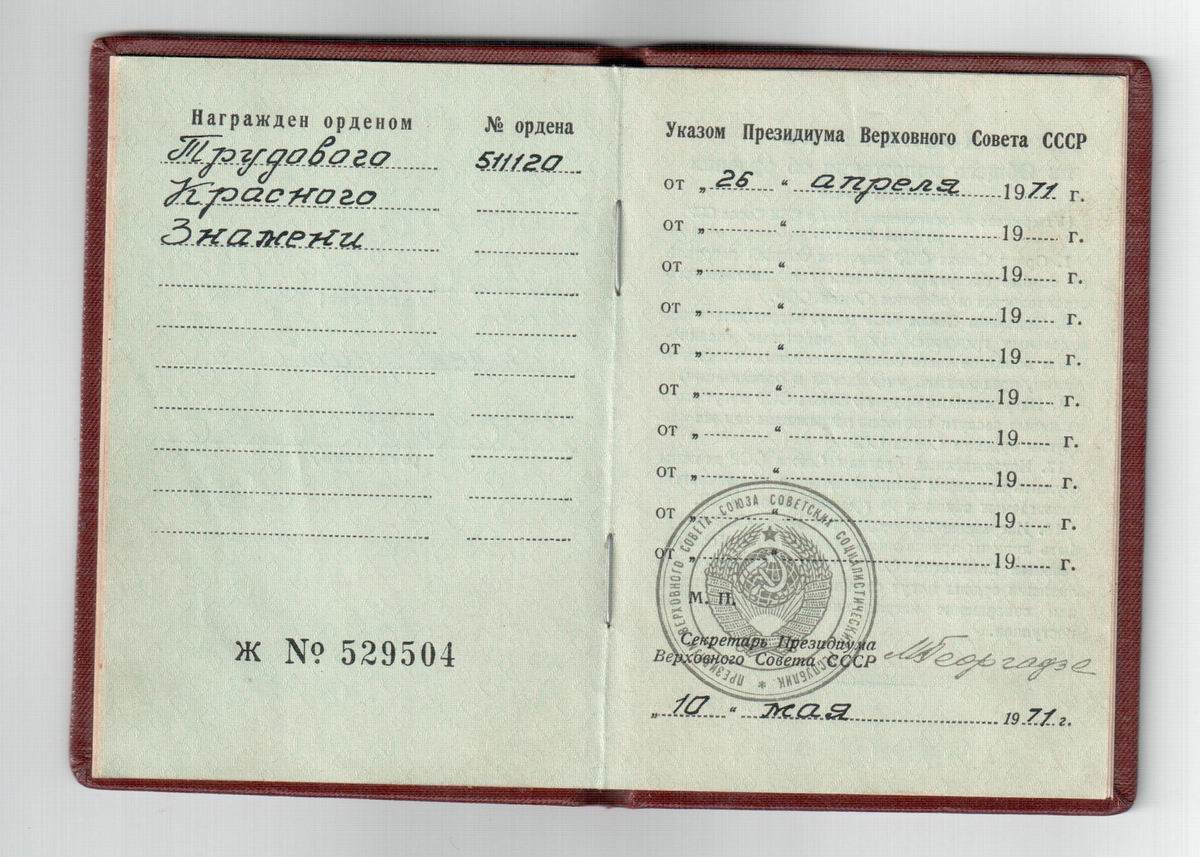 Награжден орденом № ордена
Трудового 511120
Красного
Знамени
Ж № 529504
Указом Президиума Верховного Совета СССР
от „ 26 “ апреля 1971 г.
от „ “ 19 г.
от „ “ 19 г.
от „ “ 19 г.
от „ “ 19 г.
от „ “ 19 г.
от „ “ 19 г.
от „ “ 19 г.
от „ “ 19 г.
от „ “ 19 г.
ПРЕЗИДИУМ ВЕРХОВНОГО СОВЕТА СОЮЗА СОВЕТСКИХ СОЦИАЛИСТИЧЕСКИХ РЕСПУБЛИК
М. П.
Секретарь Президиума
Верховного Совета СССР МГеоргадзе
„ 10 “ мая 1971 г.